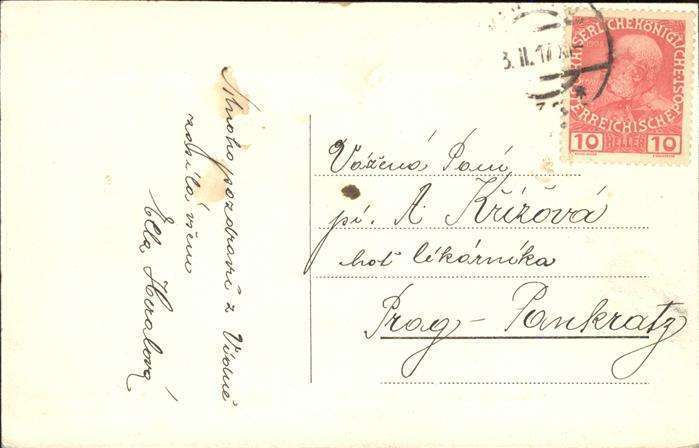 Mnoho pozdravů z Vídně
zasílá všem
Ella
Vážená Paní
pí. A. Křížová
choť lékárníka
Prag-Pankratz
KAISERLICHE KÖNIGLICHE ÖSTERREICHISCHE POST
10 HELLER 10